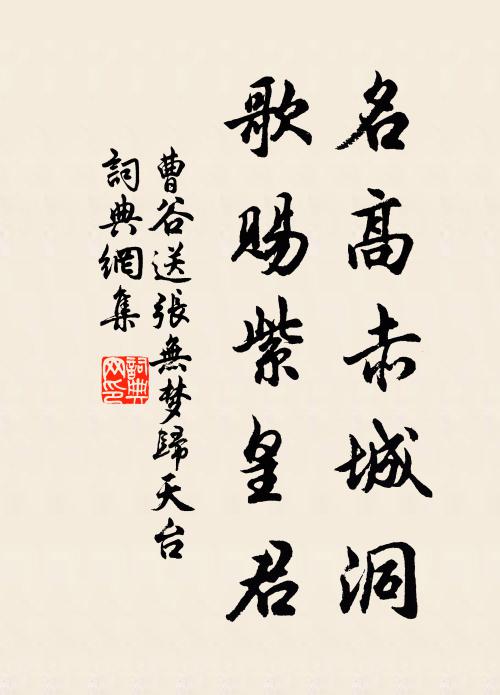 名高赤城洞
歌賜紫皇君
曹谷送張無梦歸天台
詞典網集
詞典
网印